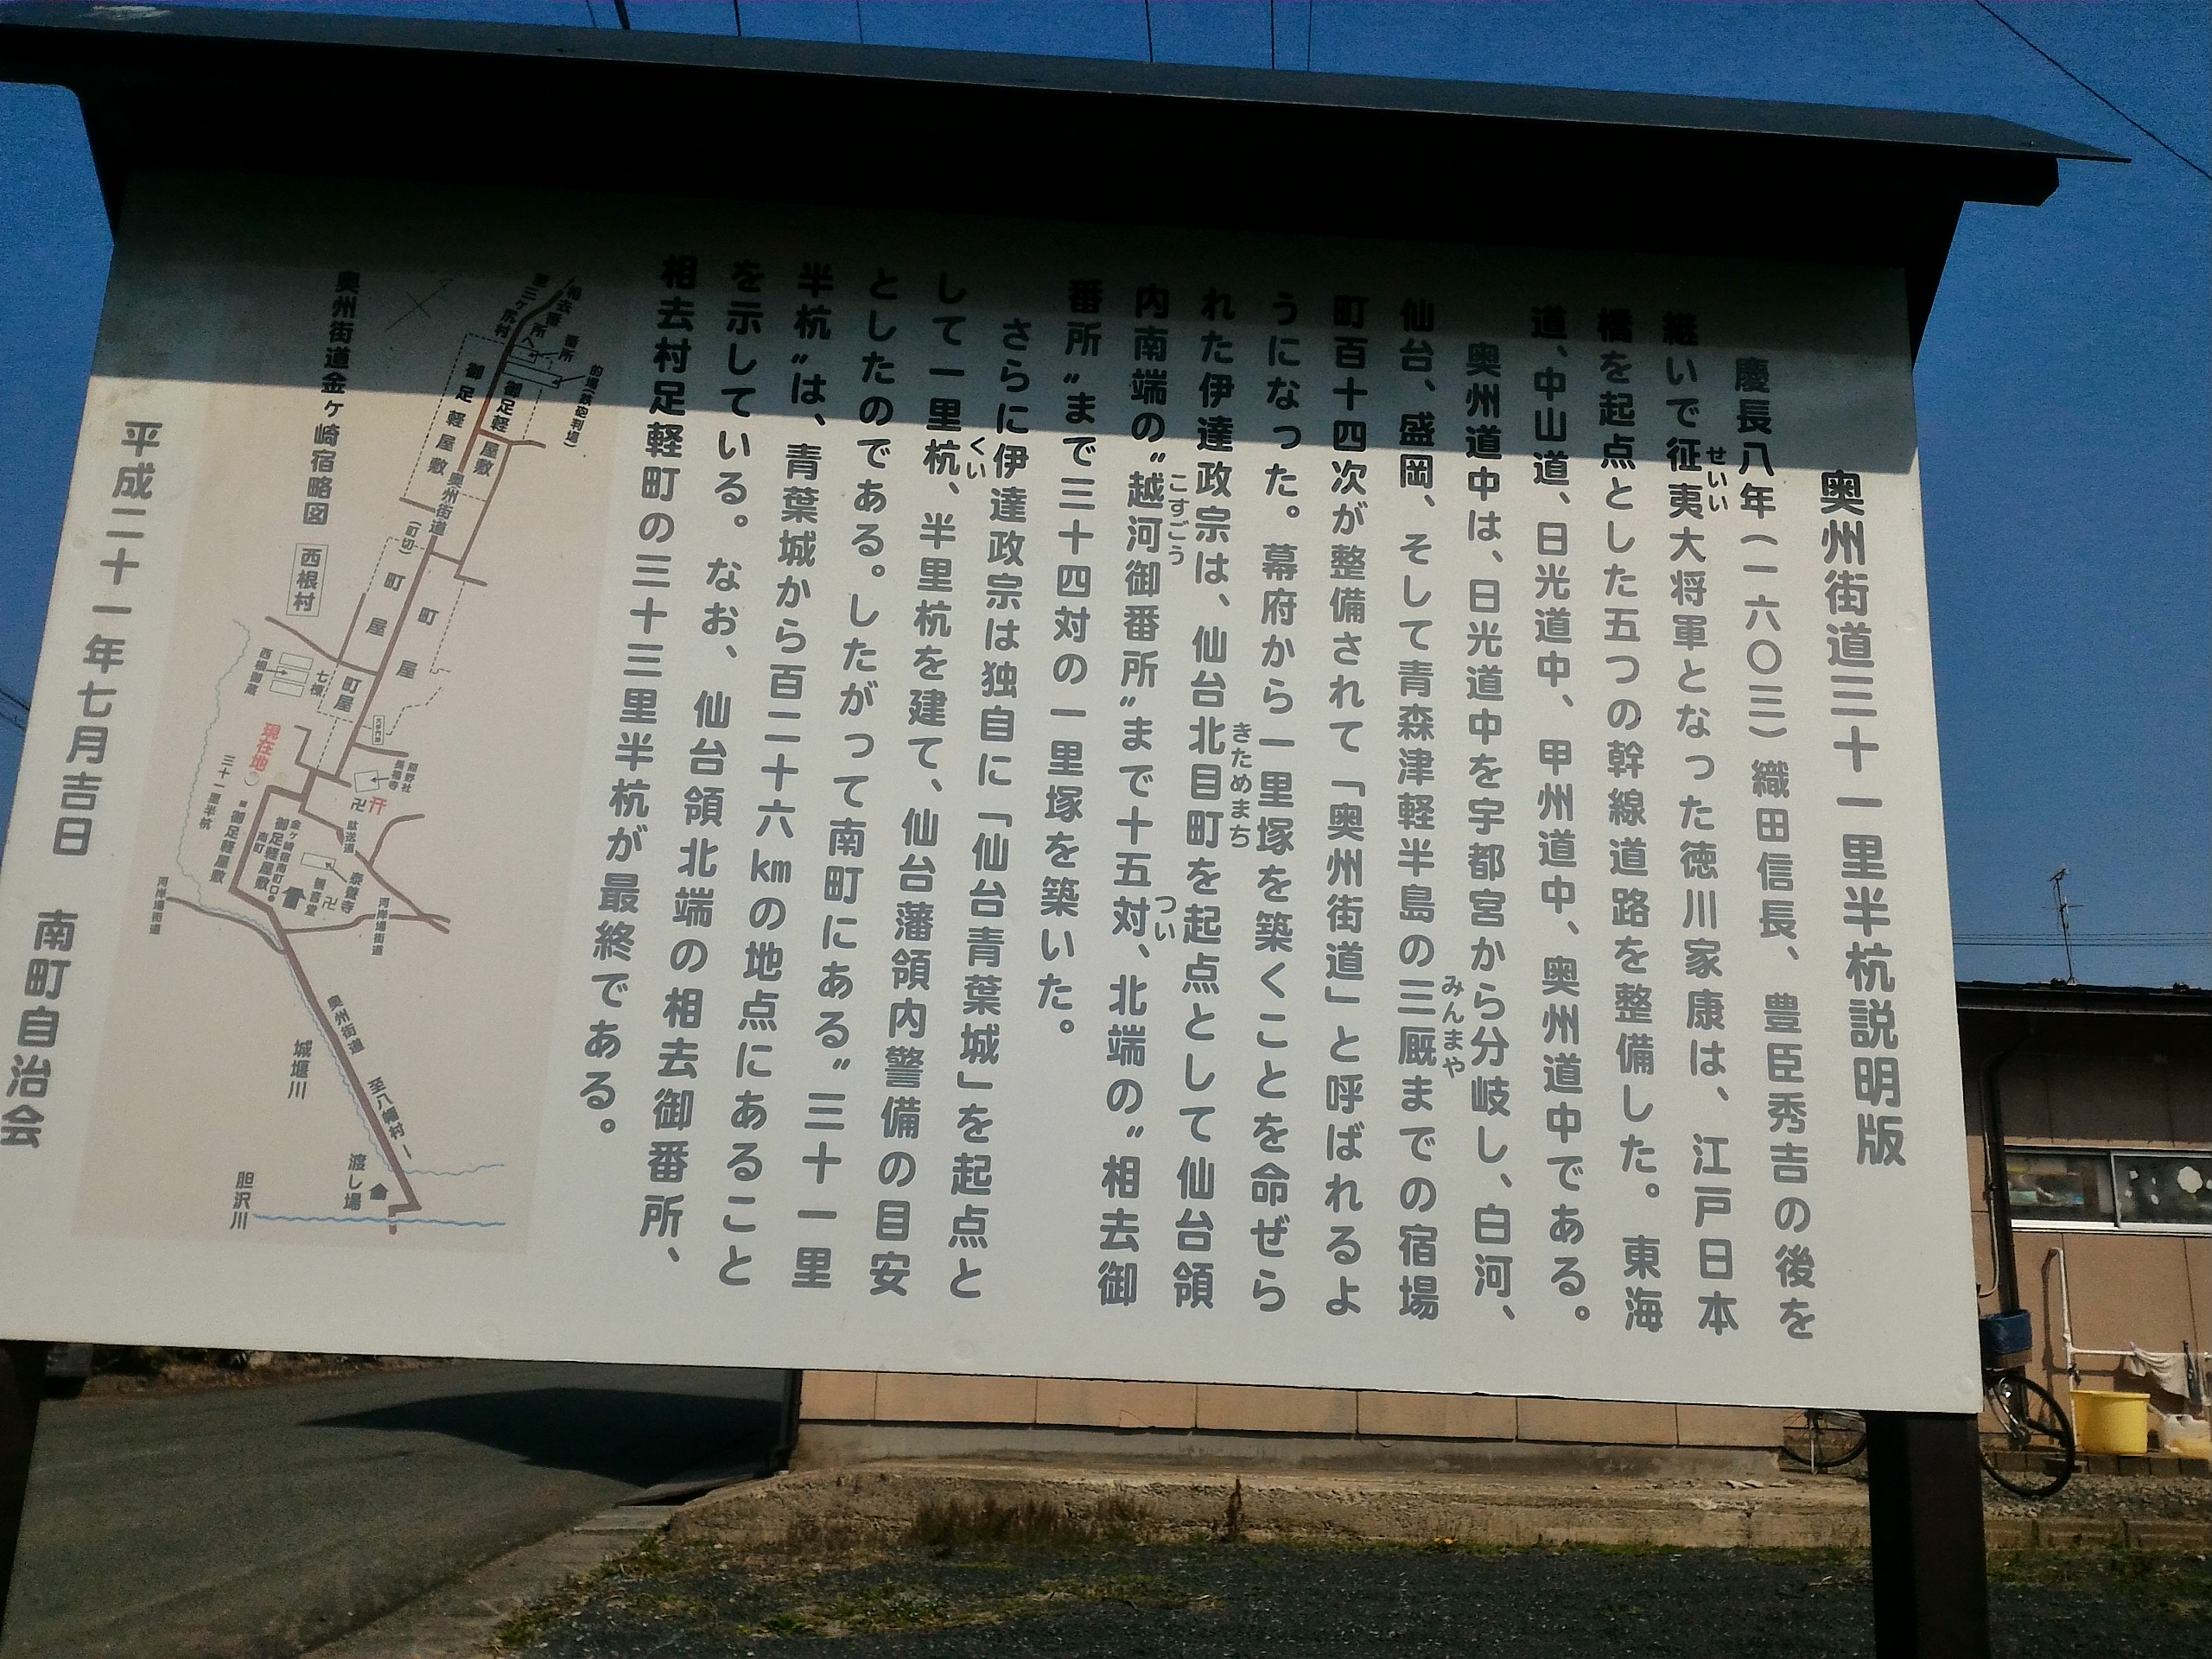 奥州街道三十一里半杭説明版
慶長八年(一六〇三)織田信長、豊臣秀吉の後を
継いで征夷大将軍となった徳川家康は、江戸日本
せいい
橋を起点とした五つの幹線道路を整備した。東海
道、中山道、日光道中、甲州道中、奥州道中である。
奥州道中は、日光道中を宇都宮から分岐し、白河、
仙台、盛岡、そして青森津軽半島の三厩までの宿場
みんまや
町百十四次が整備されて「奥州街道」と呼ばれるよ
うになった。幕府から一里塚を築くことを命ぜら
れた伊達政宗は、仙台北目町を起点として仙台領
きためまち
内南端の〝越河御番所〟まで十五対、北端の〝相去御
こすごう
つい
番所〟まで三十四対の一里塚を築いた。
さらに伊達政宗は独自に「仙台青葉城」を起点と
して一里杭、半里杭を建て、仙台藩領内警備の目安
くい
としたのである。したがって南町にある〝三十一里
半杭〟は、青葉城から百二十六㎞の地点にあること
を示している。なお、仙台領北端の相去御番所、
相去村足軽町の三十三里半杭が最終である。
奥州街道金ヶ崎宿略図
相去番所へ
至三ヶ尻村
番所
的場(鉄砲判場)
御足軽屋敷
御足軽屋敷
奥州街道
(町切)
町屋
町屋
西根村
七棟
町屋
現在地
三十一里半杭
御足軽屋敷
長福寺
駄送道
金ヶ崎宿南町口
御足軽屋敷
南町
泰養寺
観音堂
河岸場街道
河岸場街道
奥州街道
至八幡村
城堰川
渡し場
胆沢川
平成二十一年七月吉日 南町自治会